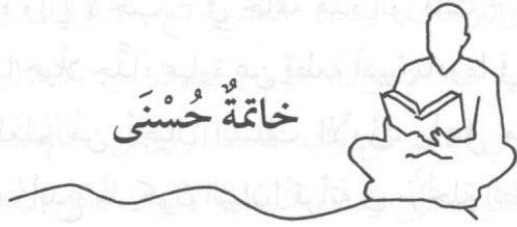 خاتمةٌ حُسْنَى